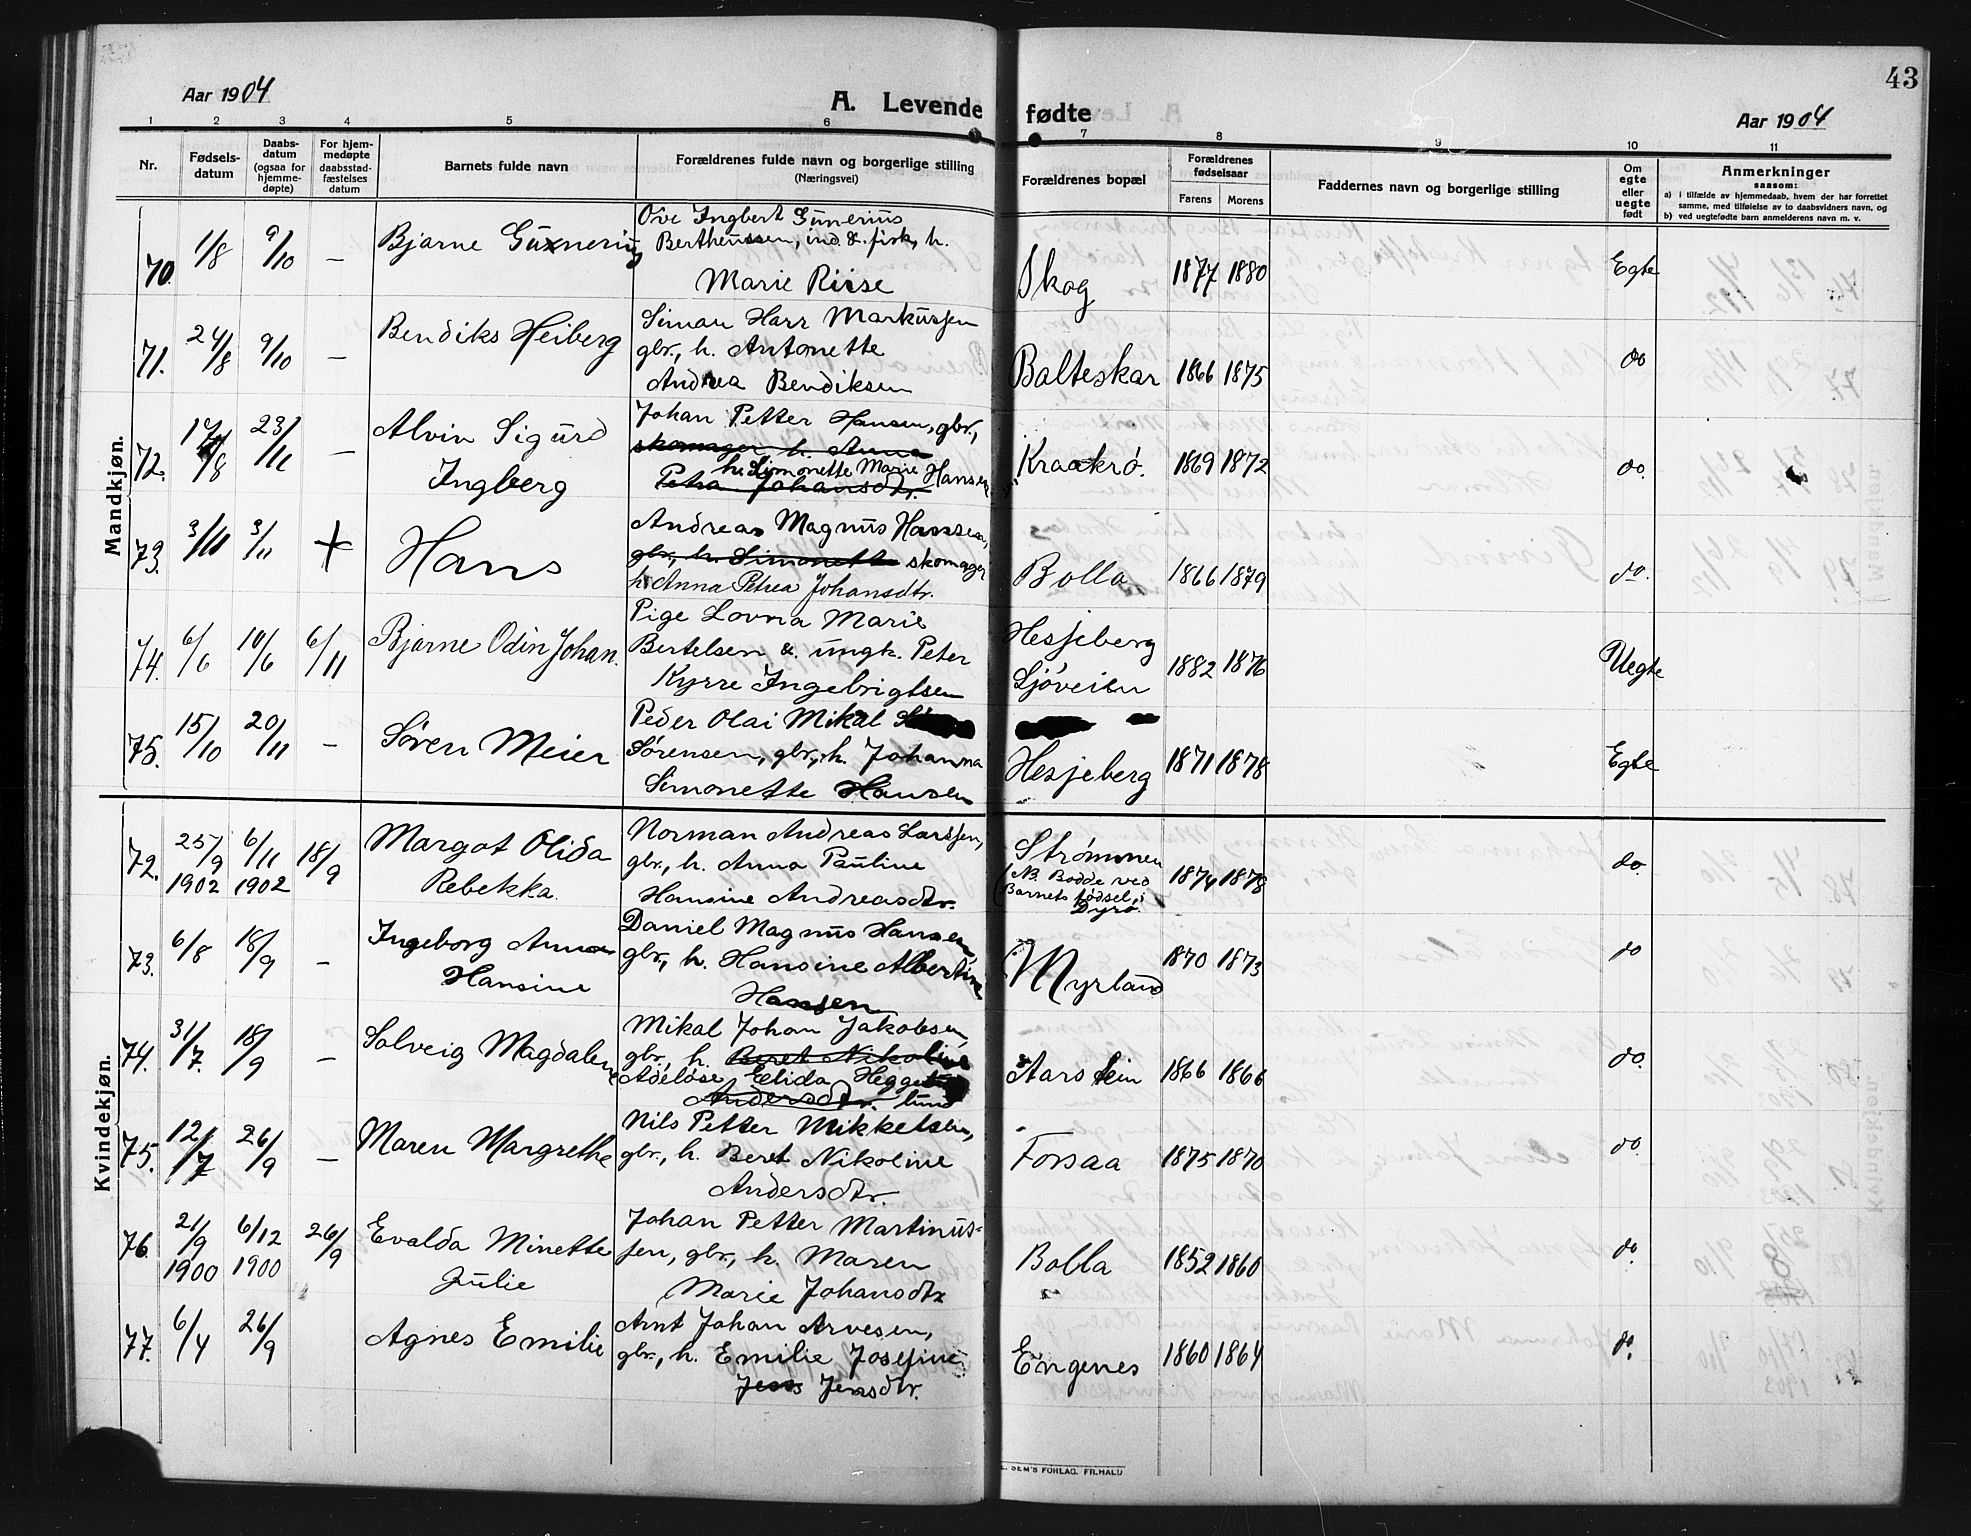 43
Aar 1904
A. Levende fødte
Aar 1904
1 2 3 4 5 6 7 8 9 10 11
Nr.
Fødsels-
datum
Daabs-
datum
(ogsaa for
hjemme-
døpte)
For hjem-
medøpte
daabsstad-
fæstelses
datum
Barnets fulde navn
Forældrenes fulde navn og borgerlige stilling
(Næringsvei)
Forældrenes bopæl
Forældrenes
fødselsaar
Farens Morens
Faddernes navn og borgerlige stilling
Om
egte
eller
uegte
født
Anmerkninger
saasom:
a) i tilfælde av hjemmedaab, hvem der har forrettet
samme, med tilføielse av to daabsvidners navn, og
b) ved uegtefødte barn anmelderens navn m. v.
Mandkjøn.
70. 1/8 9/10 — Bjarne Gunerius
Ove Ingbert Gunerius
Bertheussen, ind. & fisk, h.
Marie Risse
Skog 1877 1880 Egte
71. 24/8 9/10 — Bendiks Heiberg
Simon Harr Markussen
gbr., h. Antonette
Andrea Bendiksen
Balteskar 1866 1875 do
72. 17/8 23/11 — Alvin Sigurd
Ingberg
Johan Petter Hansen, gbr.,
skomager h. Anna
h. Simonette Marie Hansen
Petra Johansdtr.
Kraakrø. 1869 1872 do.
73. 3/11 3/11 + Hans
Andreas Magnus Hanssen,
gbr., h. Simonette skomager
h. Anna Petrea Johansdtr.
Bolla 1866 1879 do.
74. 6/6 10/6 6/11 Bjarne Odin Johan.
Pige Lovna Marie
Bertelsen & ungk. Peter
Kyrre Ingebrigtsen
Hesjeberg
Sjøveien 1882 1876 Uegte
75. 15/10 20/11 — Søren Meier
Peder Olai Mikal
Sørensen, gbr., h. Johanna
Simonette Hansen
Hesjeberg 1871 1878 Egte
Kvindekjøn.
72. 25/9 1902 6/11 1902 18/9 Margot Olida
Rebekka.
Norman Andreas Larssen,
gbr., h. Anna Pauline
Hansine Andreasdtr.
Strømmen
(NB. Bodde ved
Barnets fødsel i
Dyrø. 1874 1878 do.
73. 6/8 18/9 — Ingeborg Anna
Hansine
Daniel Magnus Hansen
gbr., h. Hansine Albertine
Hansen
Myrland 1870 1873 do
74. 31/7. 18/9 — Solveig Magdalene
Mikal Johan Jakobsen,
gbr., h. Beret Nikoline
Adeløse Elida Hegge
Andersdtr. lund
Aarstein 1866 1866 do.
75. 12/7 26/9 — Maren Margrethe
Nils Petter Mikkelsen,
gbr., h. Beret Nikoline
Andersdtr.
Forsaa 1875 1870 do.
76. 21/9 1900 6/12 1900 26/9 Evalda Minette
Julie
Johan Petter Martinus-
sen, gbr., h. Maren
Marie Johansdtr
Bolla 1852 1860 do.
77. 6/4 26/9 Agnes Emilie
Arnt Johan Arvesen,
gbr., h. Emilie Josefine
Jens Jensdtr.
Engenes 1860 1864 do.
SEM'S FORLAG. FR.HALD